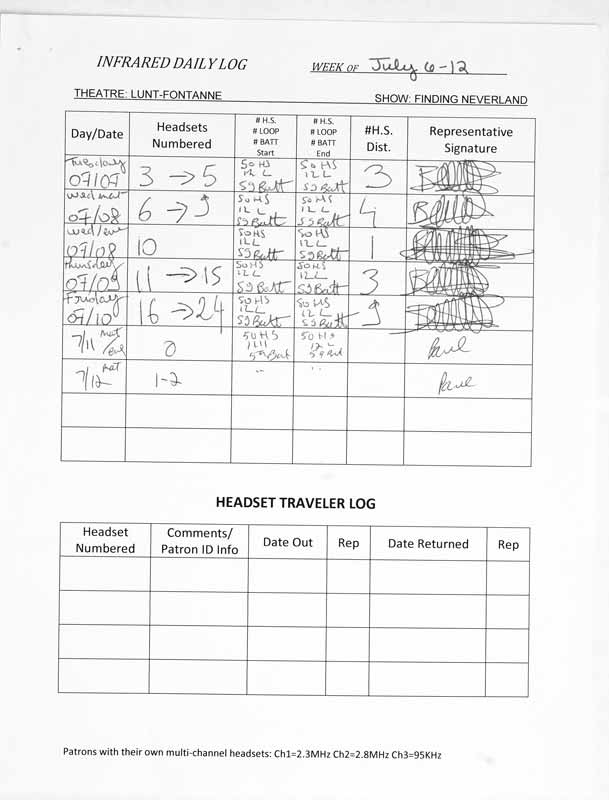 INFRARED DAILY LOG WEEK OF July 6-12
THEATRE: LUNT-FONTANNE SHOW: FINDING NEVERLAND
Day/Date Headsets Numbered # H.S. # LOOP # BATT Start # H.S. # LOOP # BATT End #H.S. Dist. Representative Signature
Tuesday 07/07 3 → 5 50 HS 12 L 59 Batt 50 HS 12 L 59 Batt 3
Wed/mat 07/08 6 → 9 50 HS 12 L 59 Batt 50 HS 12 L 59 Batt 4
Wed/eve 07/08 10 50 HS 12 L 59 Batt 50 HS 12 L 59 Batt 1
Thursday 07/09 11 → 15 50 HS 12 L 59 Batt 50 HS 12 L 59 Batt 3
Friday 07/10 16 → 24 50 HS 12 L 59 Batt 50 HS 12 L 59 Batt 9
7/11 mat/eve 0 50 HS 59 Batt 50 HS 12 L 59 Batt Paul
7/12 mat 1-2 " " Paul
HEADSET TRAVELER LOG
Headset Numbered Comments/ Patron ID Info Date Out Rep Date Returned Rep
Patrons with their own multi-channel headsets: Ch1=2.3MHz Ch2=2.8MHz Ch3=95KHz